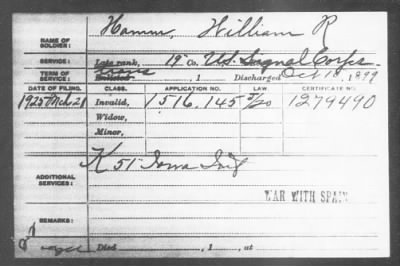 NAME OF SOLDIER: Hamm, William R
SERVICE: Late rank, 19 Co. U.S. Signal Corps
TERM OF SERVICE: Enlisted , 1 Discharged Oct 18, 1899
DATE OF FILING. CLASS. APPLICATION NO. LAW. CERTIFICATE NO.
1925 Mch 21 Invalid, 1516,145 1279490
Widow,
Minor,
ADDITIONAL SERVICES: K 51 Iowa Inf
WAR WITH SPAIN
REMARKS:
Died , 1 , at